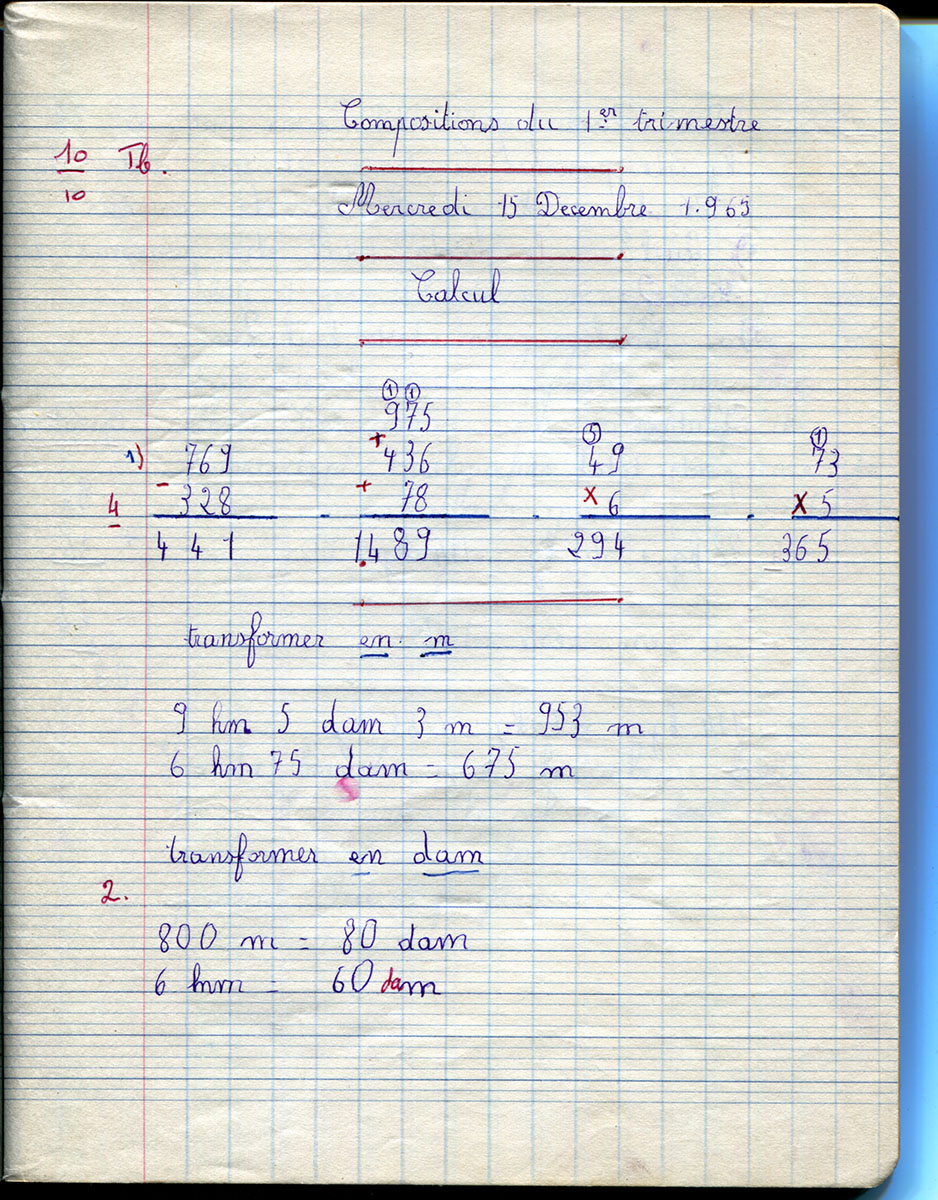 Compositions du 1er trimestre
10 Tb.
10
Mercredi 15 Decembre 1.965
Calcul
1)
4
769
- 328
441
① ①
975
+ 436
+ 78
1.489
⑤
49
x 6
294
①
73
x 5
365
transformer en m
9 hm 5 dam 3 m = 953 m
6 hm 75 dam = 675 m
transformer en dam
2.
800 m = 80 dam
6 hm = 60 dam